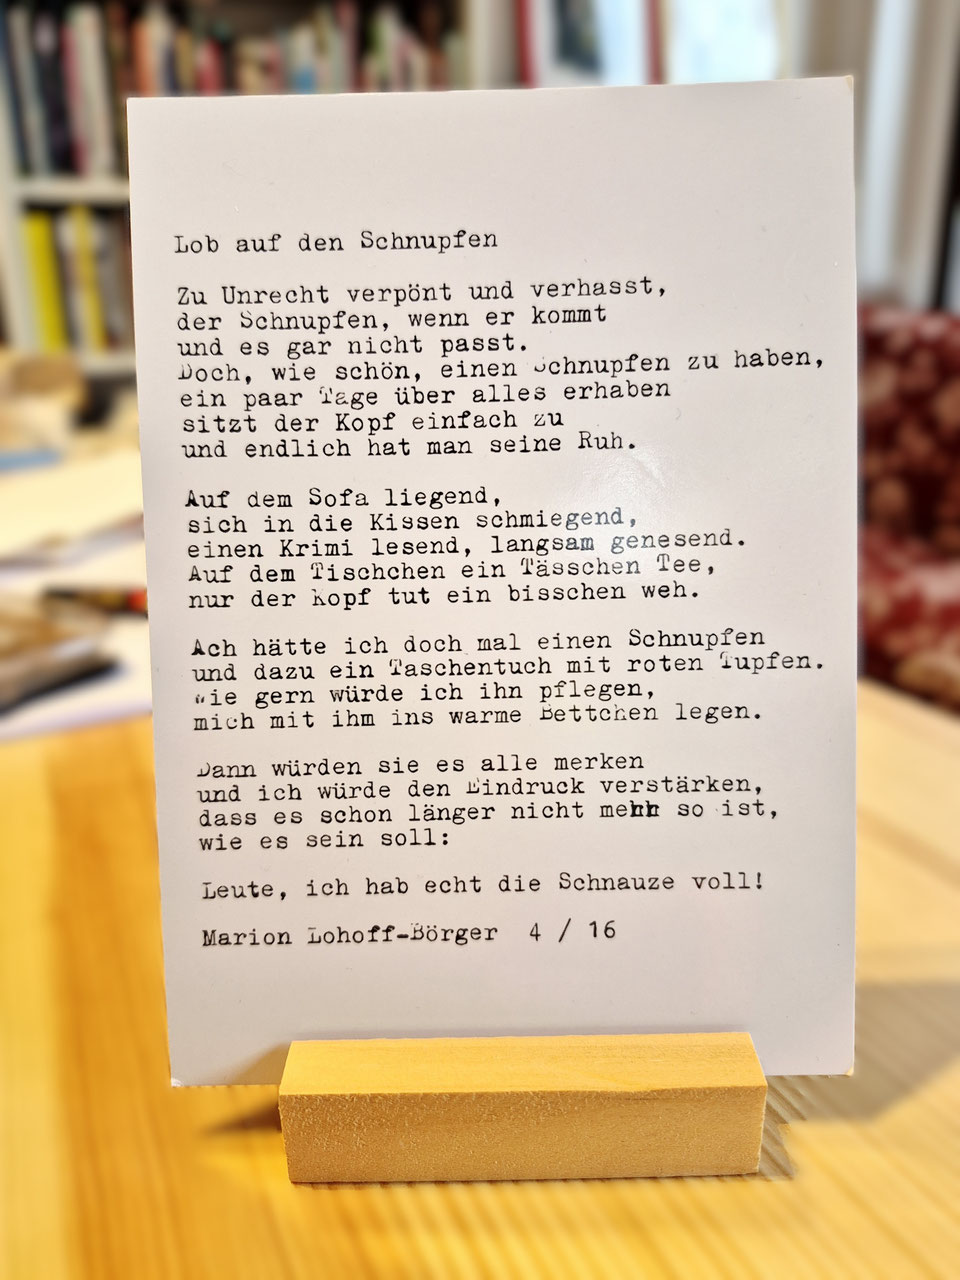 Lob auf den Schnupfen
Zu Unrecht verpönt und verhasst,
der Schnupfen, wenn er kommt
und es gar nicht passt.
Doch, wie schön, einen Schnupfen zu haben,
ein paar Tage über alles erhaben
sitzt der Kopf einfach zu
und endlich hat man seine Ruh.
Auf dem Sofa liegend,
sich in die Kissen schmiegend,
einen Krimi lesend, langsam genesend.
Auf dem Tischchen ein Tässchen Tee,
nur der Kopf tut ein bisschen weh.
Ach hätte ich doch mal einen Schnupfen
und dazu ein Taschentuch mit roten Tupfen.
Wie gern würde ich ihn pflegen,
mich mit ihm ins warme Bettchen legen.
Dann würden sie es alle merken
und ich würde den Eindruck verstärken,
dass es schon länger nicht mehr so ist,
wie es sein soll:
Leute, ich hab echt die Schnauze voll!
Marion Lohoff-Börger 4 / 16